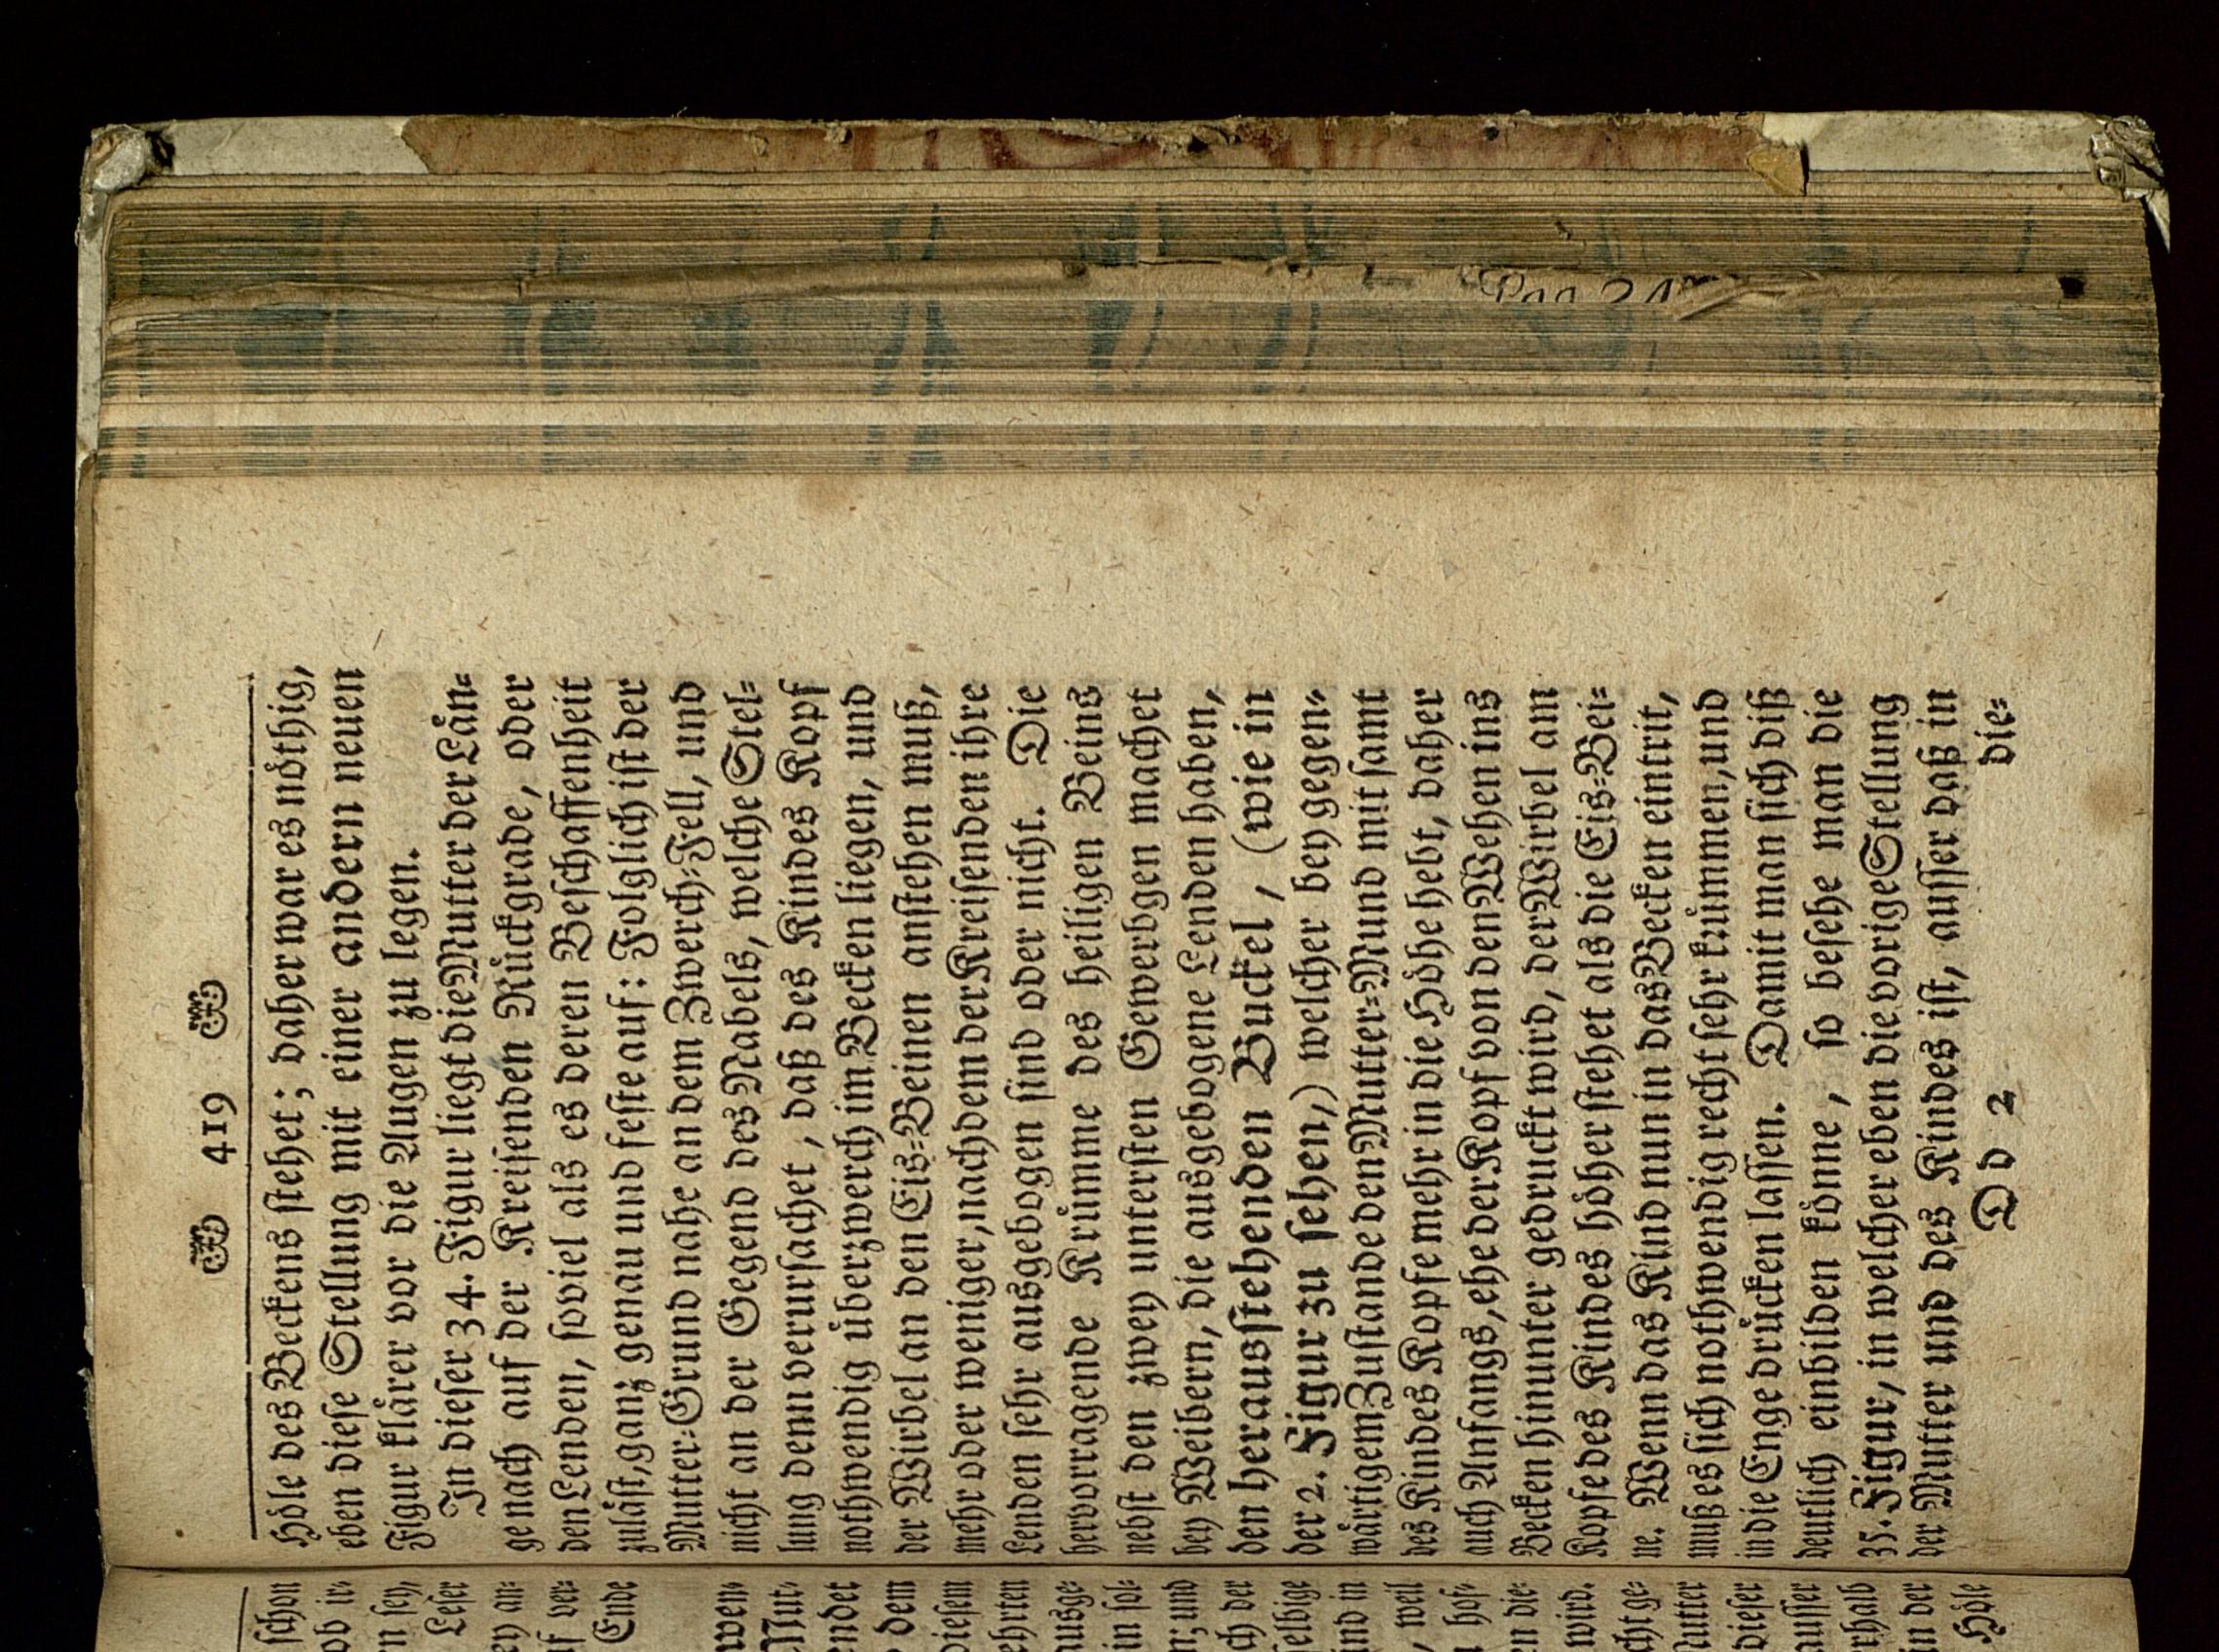 419
Höle des Beckens stehet; daher war es nöthig,
eben diese Stellung mit einer andern neuen
Figur klärer vor die Augen zu legen.
In dieser 34. Figur liegt die Mutter der Län-
ge nach auf der Kreisenden Rückgrade, oder
den Lenden, soviel als es deren Beschaffenheit
zuläst, ganz genau und feste auf: Folglich ist der
Mutter-Grund nahe an dem Zwerch-Fell, und
nicht an der Gegend des Nabels, welche Stel-
lung denn verursachet, daß des Kindes Kopf
nothwendig überzwerch im Becken liegen, und
der Wirbel an den Eis-Beinen anstehen muß,
mehr oder weniger, nachdem der Kreisenden ihre
Lenden sehr ausgebogen sind oder nicht. Die
hervorragende Krümme des heiligen Beins
nebst den zwey untersten Gewerbgen machet
bey Weibern, die ausgebogene Lenden haben,
den herausstehenden Buckel, (wie in
der 2. Figur zu sehen,) welcher bey gegen-
wärtigem Zustande den Mutter-Mund mit samt
des Kindes Kopfe mehr in die Höhe hebt, daher
auch Anfangs, ehe der Kopf von den Wehen ins
Becken hinunter gedruckt wird, der Wirbel am
Kopfe des Kindes höher stehet als die Eis-Bei-
ne. Wenn das Kind nun in das Becken eintrit,
muß es sich nothwendig recht sehr krümmen, und
in die Enge drücken lassen. Damit man sich diß
deutlich einbilden könne, so besehe man die
35. Figur, in welcher eben die vorige Stellung
der Mutter und des Kindes ist, ausser daß in
Dd 2 die-
schon
ob ir-
n sey,
Leser
ey an-
f ver-
Ende
wen-
Mut-
endet
dem
diesem
ehrten
ausge-
in sol-
n; und
ch der
selbige
ind in
, weil
hof-
n die-
wird.
cht ge-
Mutter
dieser
ausser
rhalb
in der
Höle